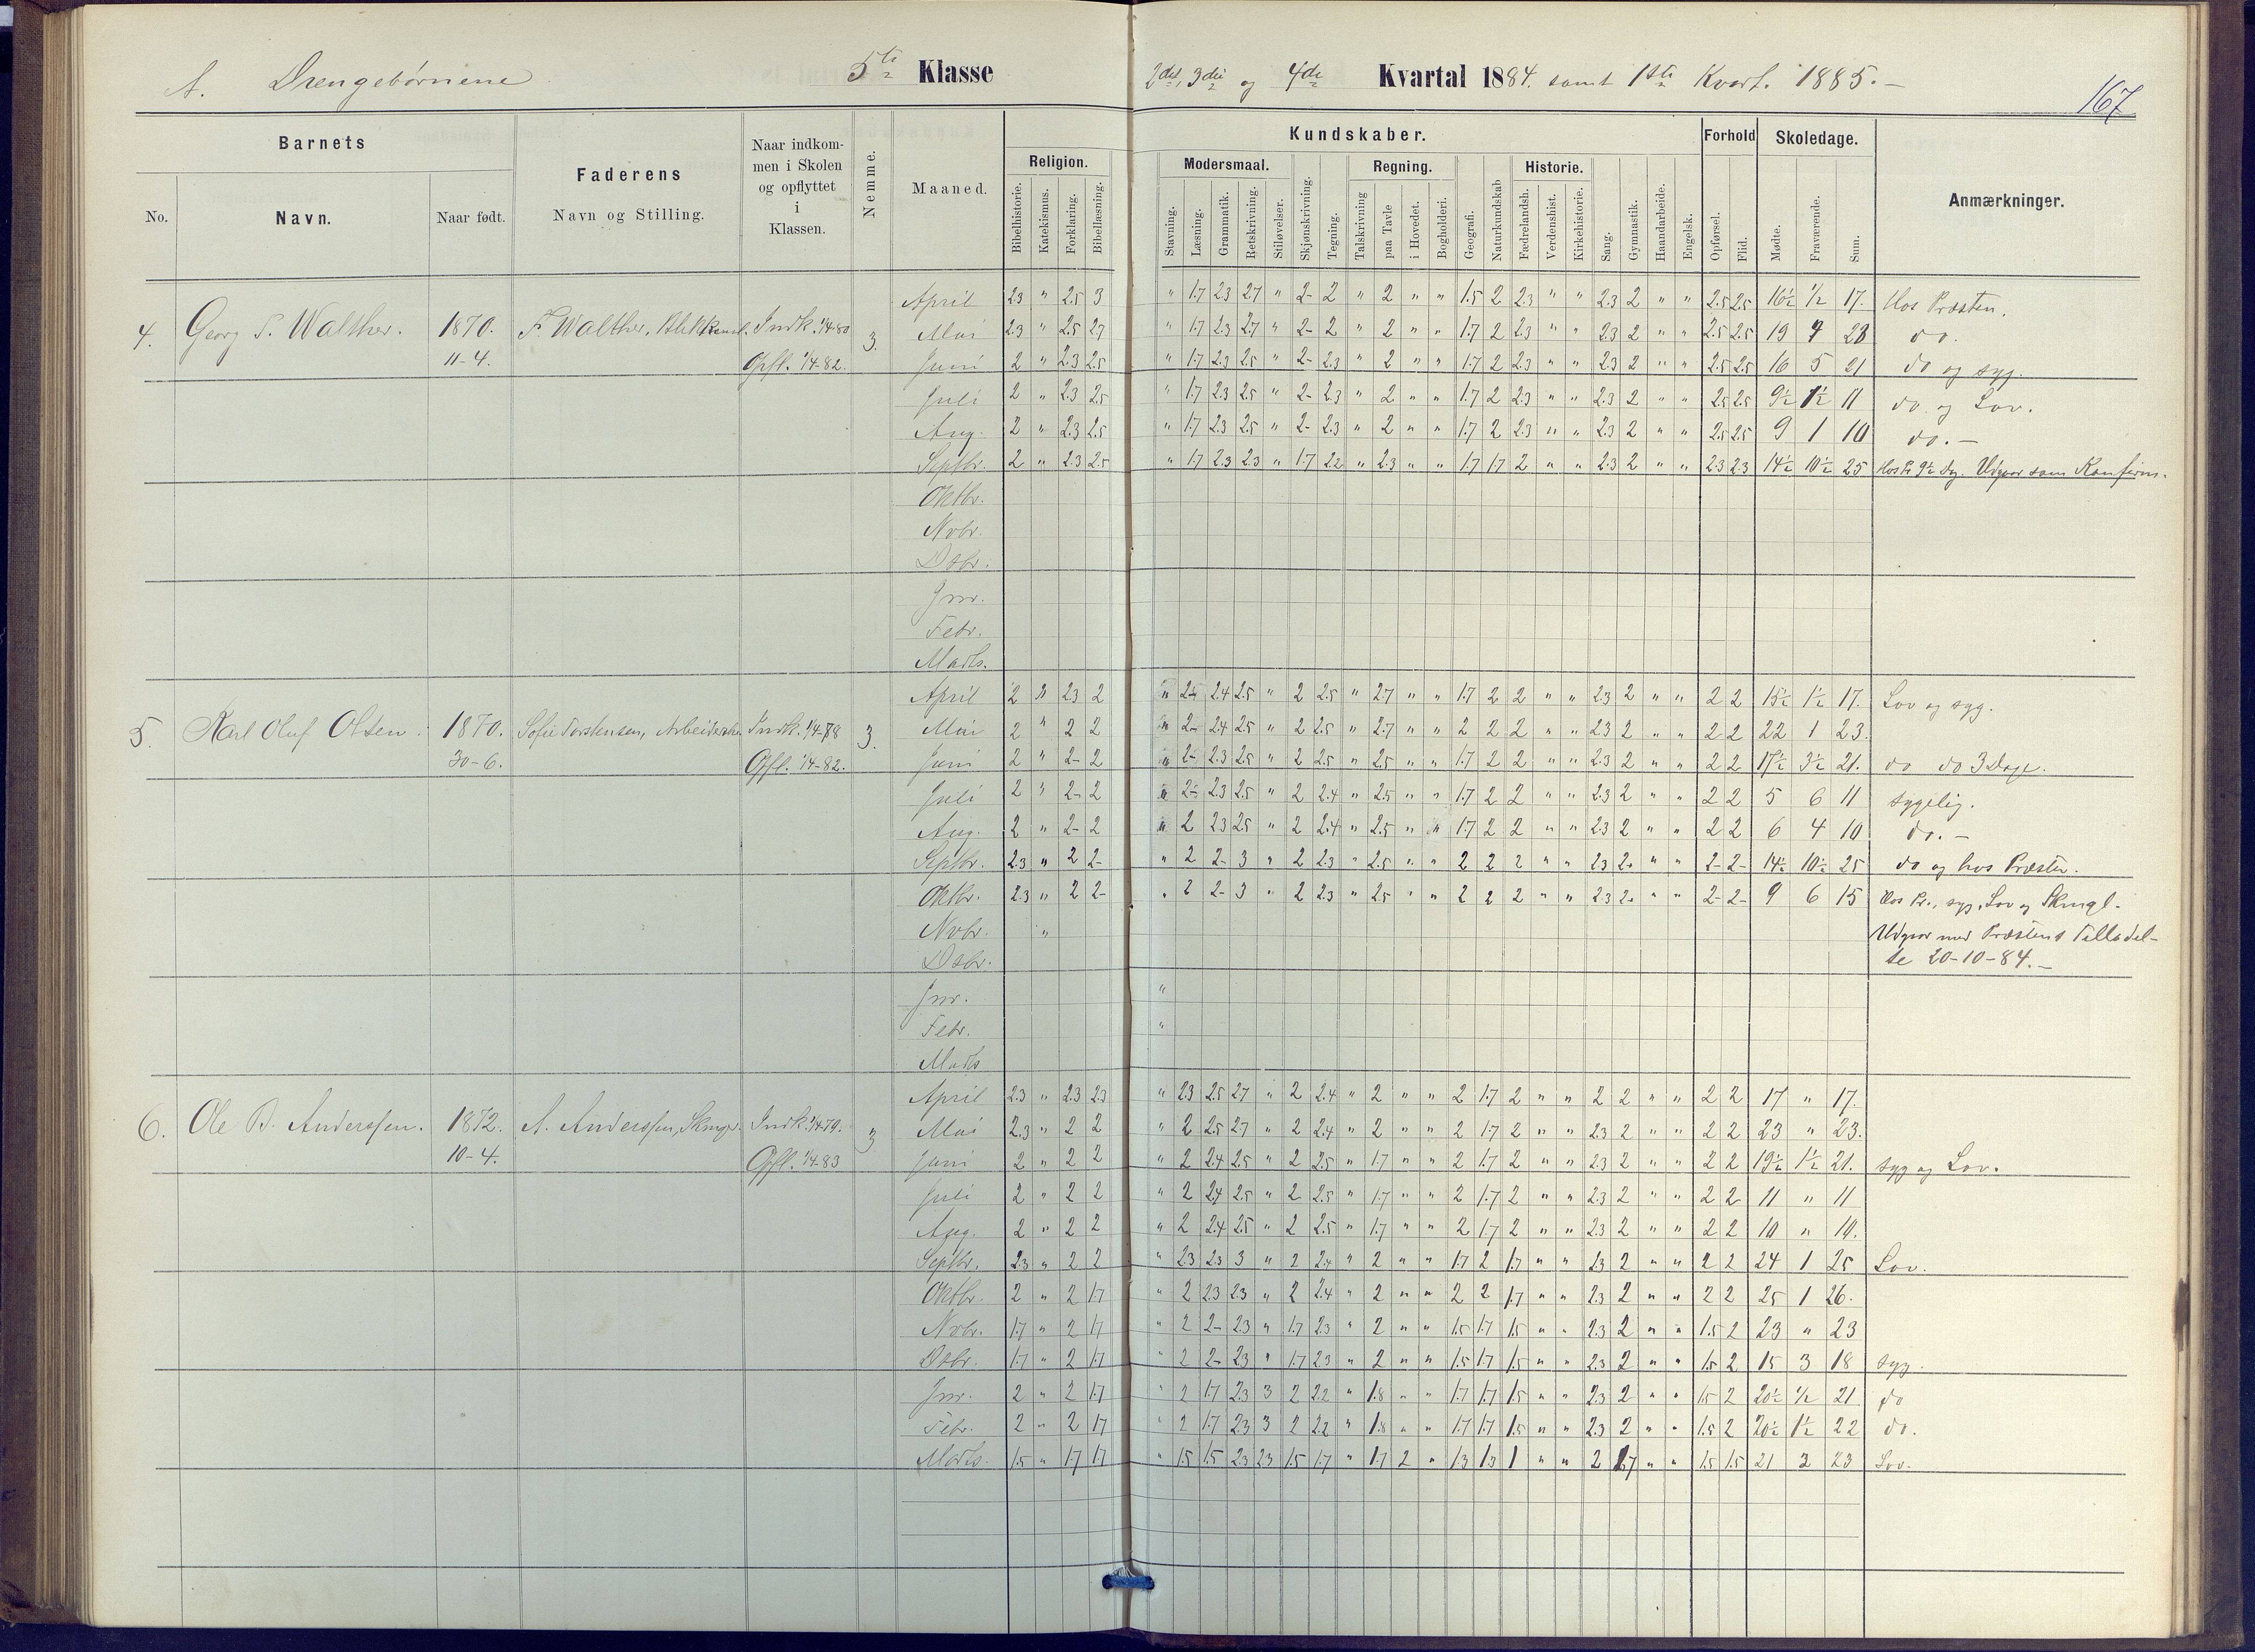 A. Drengebørnene 5te Klasse 2det, 3die og 4de Kvartal 1884. samt 1ste Kvart. 1885.-
167
Barnets Faderens Naar indkommen i Skolen og opflyttet i Klassen. Nemme. Maaned. Kundskaber. Forhold Skoledage. Anmærkninger.
No. Navn. Naar født. Navn og Stilling.
Religion. Modersmaal. Regning. Historie.
Bibelhistorie. Katekismus. Forklaring. Bibellæsning. Stavning. Læsning. Grammatik. Retskrivning. Stiløvelser. Skjønskrivning. Tegning. Talskrivning paa Tavle i Hovedet. Bogholderi. Geografi. Naturkundskab Fædrelandsh. Verdenshist. Kirkehistorie. Sang. Gymnastik. Haandarbeide. Engelsk. Opførsel. Flid. Mødte. Fraværende. Sum.
April 2.3 " 2.5 3 " 1.7 2.3 2.7 " 2- 2 " 2 " " 1.5 2 2.3 " " 2.3 2 " " 2.5 2.5 16½ ½ 17. Hos Præsten.
4. Georg S. Walther. 1870. F. Walther, Indk. 1/4-80 3. Mai 2.3 " 2.5 2.7 " 1.7 2.3 2.7 " 2- 2 " 2 " " 1.7 2 2.3 " " 2.3 2 " " 2.5 2.5 19 4 23 do.
11-4. Opfl. 1/4-82. Juni 2 " 2.3 2.5 " 1.7 2.3 2.5 " 2- 2.3 " 2 " " 1.7 2 2.3 " " 2.3 2 " " 2.5 2.5 16 5 21 do og syg.
Juli 2 " 2.3 2.5 " 1.7 2.3 2.5 " 2- 2.3 " 2 " " 1.7 2 2.3 " " 2.3 2 " " 2.5 2.5 9½ 1½ 11 do og Lov.
Aug. 2 " 2.3 2.5 " 1.7 2.3 2.5 " 2- 2.3 " 2 " " 1.7 2 2.3 " " 2.3 2 " " 2.5 2.5 9 1 10 do.-
Septbr. 2 " 2.3 2.5 " 1.7 2.3 2.3 " 1.7 2.2 " 2.3 " " 1.7 1.7 2 " " 2.3 2 " " 2.3 2.3 14½ 10½ 25 Hos Pr 9½ Dg. Udgaar som Konfirm.
Oktbr.
Nvbr.
Dsbr.
Jnr.
Febr.
Marts.
April 2 " 2.3 2 " 2- 2.4 2.5 " 2 2.5 " 2.7 " " 1.7 2 2 " " 2.3 2 " " 2 2 15½ 1½ 17. Lov og syg.
5. Karl Oluf Olsen. 1870. Sofie Torstensen, Indk. 1/4-78 3. Mai 2 " 2 2 " 2- 2.4 2.5 " 2 2.5 " 2.7 " " 2 2 2 " " 2.3 2 " " 2 2 22 1 23.
30-6. Opfl. 1/4-82. Juni 2 " 2- 2 " 2- 2.3 2.5 " 2 2.5 " 2.5 " " 1.7 2 2 " " 2.3 2 " " 2 2 17½ 3½ 21. do do 3 Dage.
Juli 2 " 2- 2 " 2- 2.3 2.5 " 2 2.4 " 2.5 " " 1.7 2 2 " " 2.3 2 " " 2 2 5 6 11 sygelig.
Aug. 2 " 2- 2 " 2 2.3 2.5 " 2 2.4 " 2.5 " " 1.7 2 2 " " 2.3 2 " " 2 2 6 4 10 do.-
Septbr. 2.3 " 2 2- " 2 2- 3 " 2 2.3 " 2.5 " " 2 2 2 " " 2.3 2 " " 2- 2- 14½ 10½ 25 do og hos Præsten.
Oktbr. 2.3 " 2 2- " 2 2- 3 " 2 2.3 " 2.5 " " 2 2 2 " " 2.3 2 " " 2- 2- 9 6 15 Hos Pr., syg, Lov og
Nvbr. " Udgaar med Præstens Tilladel-
Dsbr. se 20-10-84.-
Jnr. "
Febr. "
Marts
April 2.3 " 2.3 2.3 " 2.3 2.5 2.7 " 2 2.4 " 2 " " 2 1.7 2 " " 2 2 " " 2 2 17 " 17.
6. Ole B. Anderssen. 1872. A. Anderssen, Indk. 1/4-79. 3 Mai 2.3 " 2 2 " 2 2.5 2.7 " 2 2.4 " 2 " " 2 1.7 2 " " 2.3 2 " " 2 2 23 " 23.
10-4. Opfl. 1/4-83 Juni 2 " 2 2 " 2 2.4 2.5 " 2 2.5 " 1.7 " " 2 1.7 2 " " 2.3 2 " " 2 2 19½ 1½ 21. syg og Lov.
Juli 2 " 2 2 " 2 2.4 2.5 " 2 2.5 " 1.7 " " 2 1.7 2 " " 2.3 2 " " 2 2 11 " 11
Aug. 2 " 2 2 " 2 2.4 2.5 " 2 2.5 " 1.7 " " 2 1.7 2 " " 2.3 2 " " 2 2 10 " 10.
Septbr. 2.3 " 2 2 " 2.3 2.3 3 " 2 2.4 " 2 " " 1.7 2 1.7 " " 2.3 2 " " 2 2 24 1 25 Lov.
Oktbr. 2 " 2 1.7 " 2 2.3 2.3 " 2 2.4 " 2 " " 2 2 1.7 " " 2.3 2 " " 2 2 25 1 26.
Nvbr. 1.7 " 2 1.7 " 2 2- 2.3 " 1.7 2.3 " 2 " " 1.5 1.7 1.5 " " 2.3 2 " " 1.5 2 23 " 23
Dsbr. 1.7 " 2 1.7 " 2 2- 2.3 " 1.7 2.3 " 2 " " 1.5 1.7 1.5 " " 2.3 2 " " 1.5 2 15 3 18 syg.
Jnr. 2 " 2 1.7 " 2 1.7 2.3 3 2 2.2 " 1.8 " " 1.7 1.7 1.5 " " 2.3 2 " " 1.5 2 20½ ½ 21 do
Febr. 2 " 2 1.7 " 2 1.7 2.3 3 2 2.2 " 1.8 " " 1.7 1.7 1.5 " " 2.3 2 " " 1.5 2 20½ 1½ 22 do.
Marts. 1.5 " 1.7 1.7 " 1.5 1.5 2.3 2.3 1.5 1.7 " 1.7 2 " 1.3 1.3 1 " " 2 1.7 " " 1.5 1.5 21 2 23 Lov.